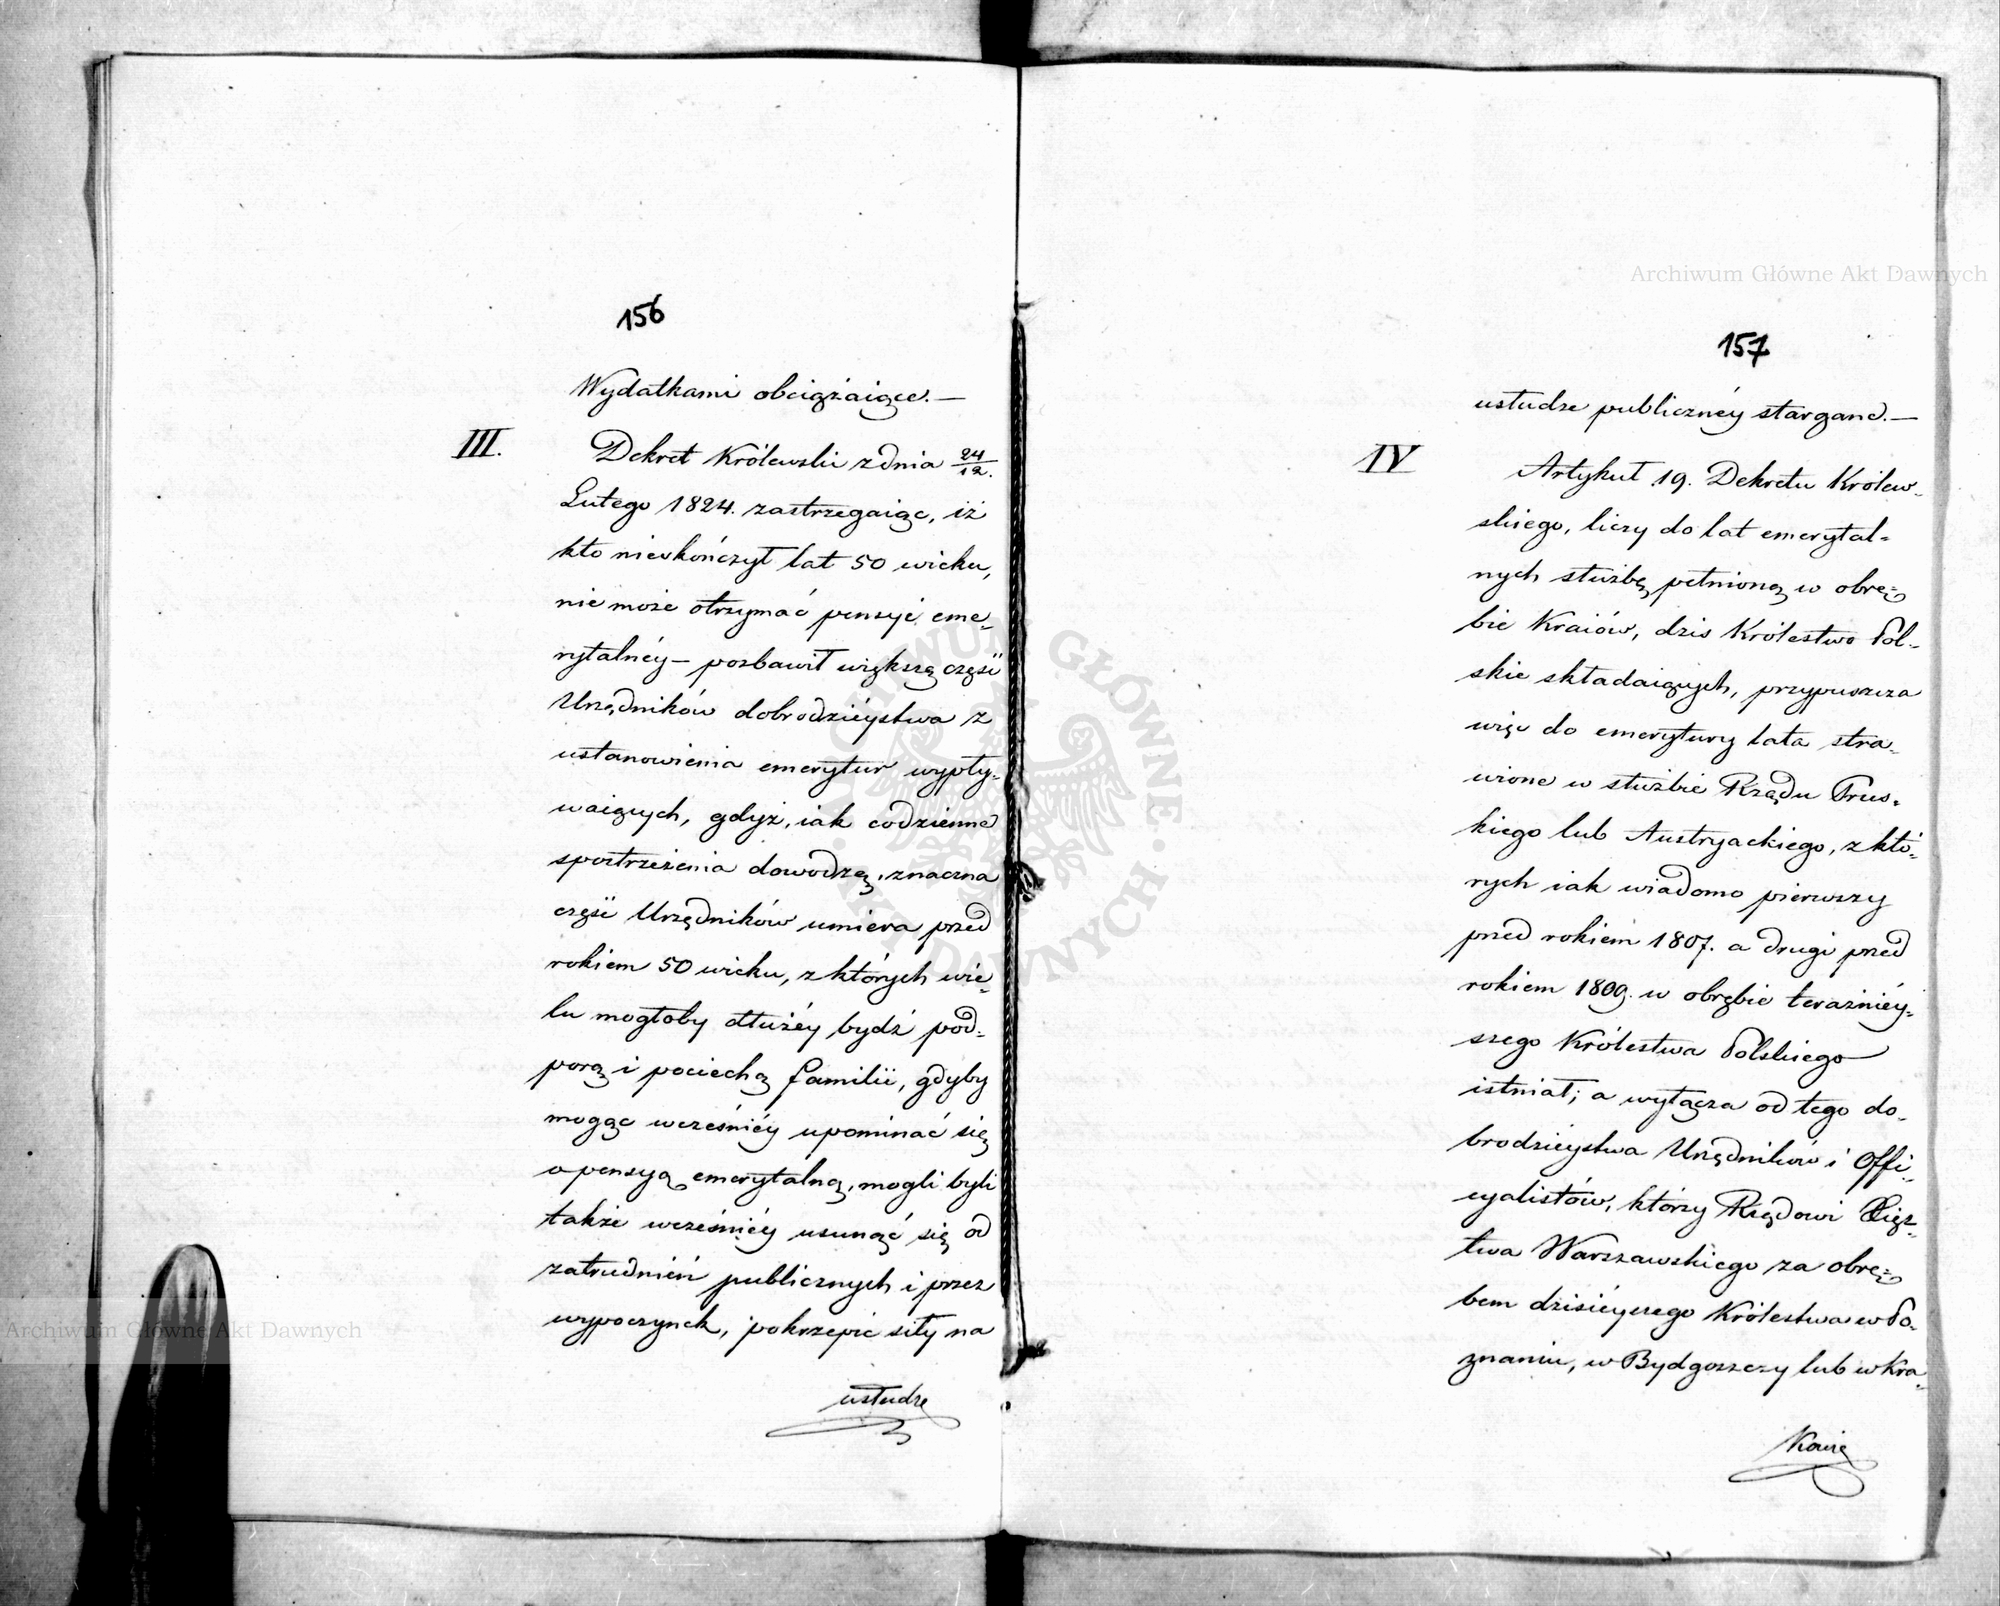 156
Wydatkami obciążaiące. —
III. Dekret Królewski z dnia 24/12.
Lutego 1824. zastrzegaiąc, iż
kto nieskończył lat 50 wieku,
nie może otrzymać pensyi eme-
rytalnéy — pozbawił większą część
Urzędników dobrodziéystwa z
ustanowienia emerytur wypły-
waiących, gdyż, iak codzienne
spostrzeżenia dowodzą, znaczna
część Urzędników umiera przed
rokiem 50 wieku, z których wie-
lu mogłoby dłużéy bydź pod-
porą i pociechą familii, gdyby
mogąc wcześniéy upominać się
o pensyą emerytalną, mogli byli
także wcześniéy usunąć się od
zatrudnień publicznych i przez
wypoczynek, pokrzepić siły na
usłudze
157
usłudze publicznéy stargane. —
IV Artykuł 19. Dekretu Królew-
skiego, liczy do lat emerytal-
nych służbę pełnioną w obrę-
bie Kraiów, dziś Królestwo Pol-
skie składaiących, przypuszcza
więc do emerytury lata stra-
wione w służbie Rządu Prus-
kiego lub Austryackiego, z któ-
rych iak wiadomo pierwszy
przed rokiem 1807. a drugi przed
rokiem 1809. w obrębie teraźniéy-
szego Królestwa Polskiego
istniał; a wyłącza od tego do-
brodziéystwa Urzędników i Offi-
cyalistów, którzy Rządowi Xięz-
twa Warszawskiego za obrę-
bem dzisiéyszego Królestwa w Po-
znaniu, w Bydgoszczy lub w Kra-
kowie
Archiwum Główne Akt Dawnych
Archiwum Główne Akt Dawnych
ARCHIWUM GŁÓWNE · AKT DAWNYCH ·